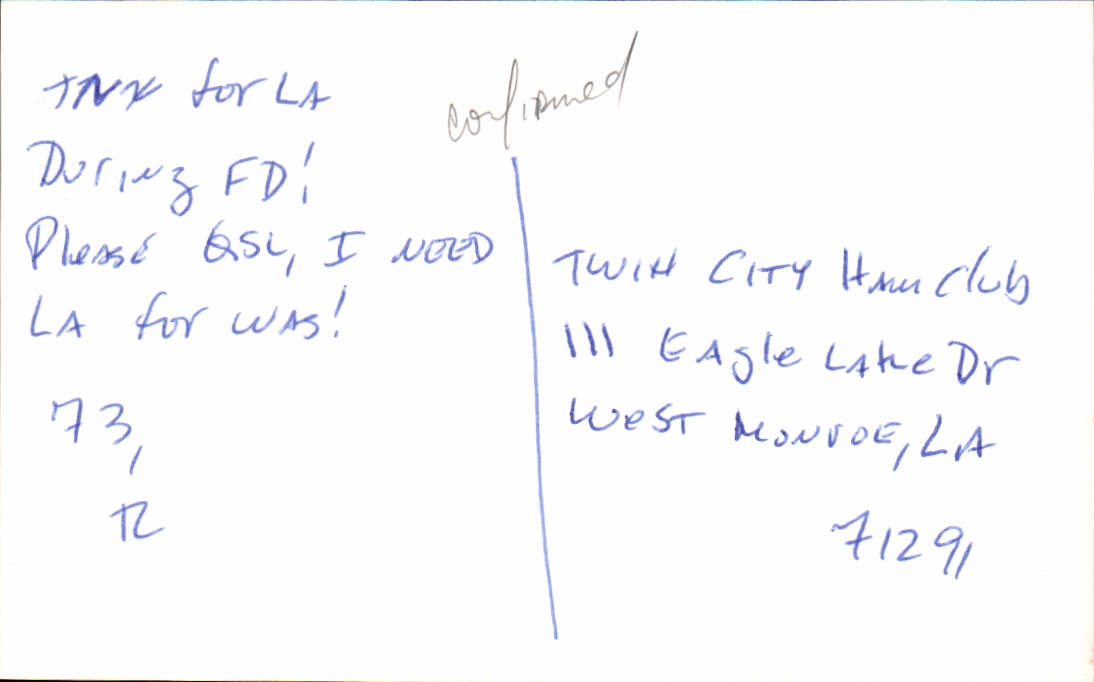 TNX for LA
During FD!
Please QSL, I NEED
LA for WAS!
73,
confirmed
TWIN CITY Ham Club
111 Eagle Lake Dr
West Monroe, LA
71291